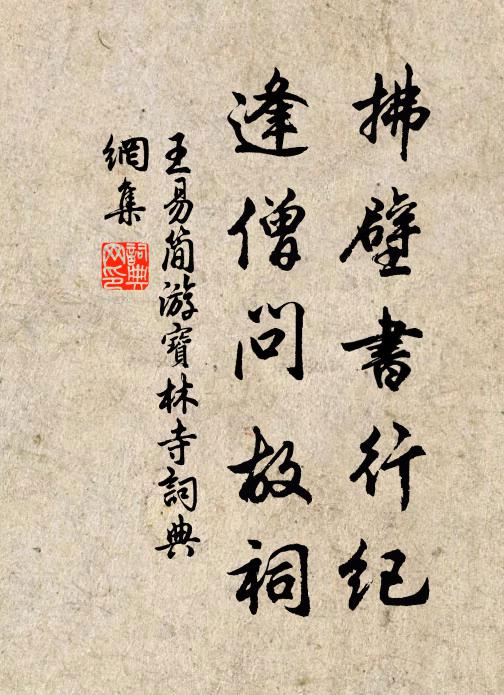 拂壁書行纪
逢僧問故祠
王易简游寶林寺詞典
網集
詞典
网印